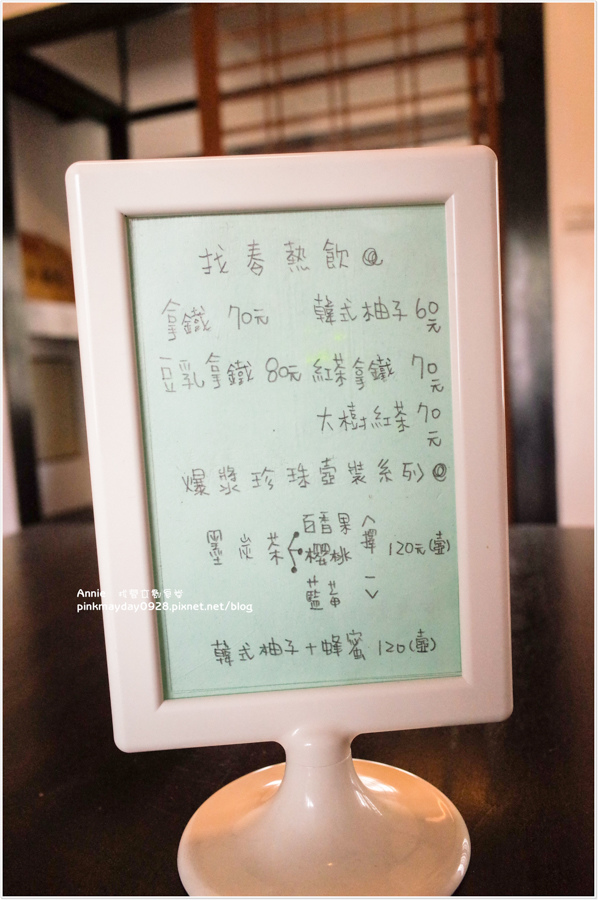 找春熱飲@
拿鐵 70元 韓式柚子 60元
豆乳拿鐵 80元 紅茶拿鐵 70元
大樹紅茶 70元
爆漿珍珠壺裝系列@
百香果
墨炭茶 櫻桃 <擇一> 120元(壺)
藍莓
韓式柚子+蜂蜜 120(壺)
Annie
pinkmayday0928.pixnet.net/blog